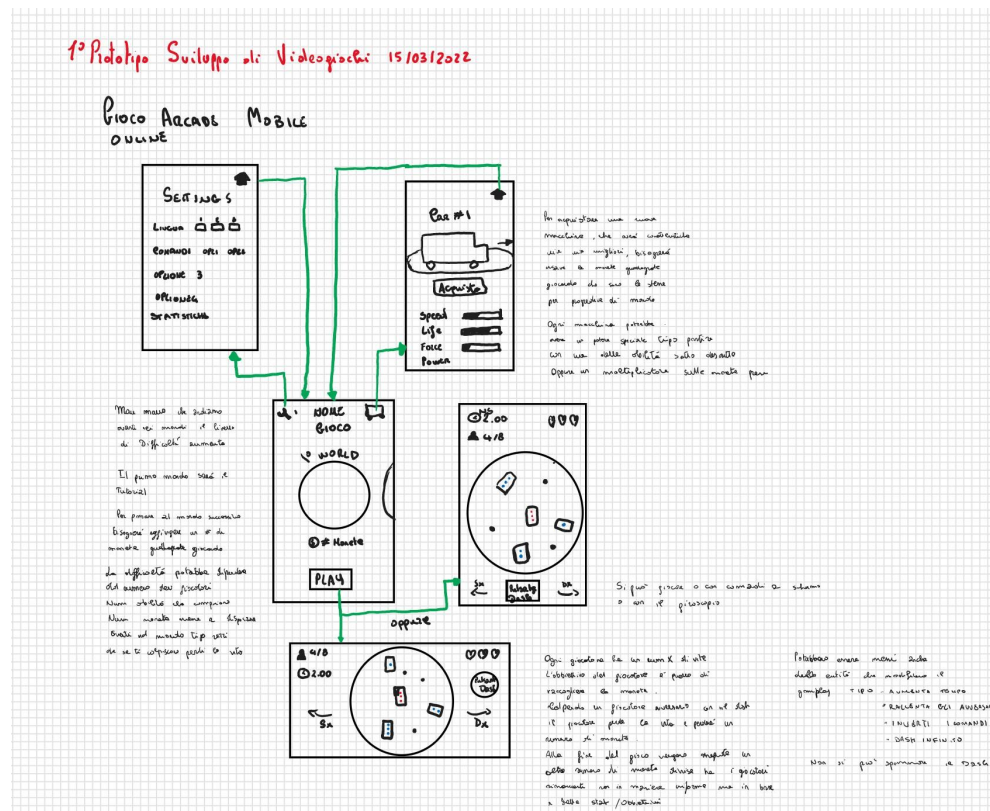 1° Prototipo Sviluppo di Videogiochi 15/03/2022
Gioco Arcade Mobile
ONLINE
SETTINGS
LINGUA
COMANDI OP1 OP2
OPZIONE 3
OPZIONE 4
STATISTICHE
Car #1
Acquisto
Speed
Life
Force
Power
Per acquistare una nuova
macchina, che avrà
migliori, bisognerà
usare le monete guadagnate
giocando
per di mondo
Ogni macchina potrebbe
avere un potere speciale tipo partire
con una delle abilità sotto
Oppure un moltiplicatore sulle monete
Man mano che andiamo
avanti nei mondi il livello
di Difficoltà aumenta
Il primo mondo sarà il
Tutorial
Per passare al mondo successivo
bisognerà raggiungere un # di
monete guadagnate giocando
La difficoltà potrebbe dipendere
dal numero dei giocatori
Num abilità che compaiono
Num monete messe a disposizione
nel mondo tipo
che se ti colpiscono perdi la vita
NOME
GIOCO
1° WORLD
# Monete
PLAY
oppure
2.00
4/8
Sx
Pulsante
Dash
Dx
Si può giocare o con comandi a schermo
o con il giroscopio
4/8
2.00
Pulsante
Dash
Sx
Dx
Ogni giocatore ha un num X di vite
L'obbiettivo del giocatore è quello di
raccogliere le monete.
Colpendo un giocatore avversario con il dash
il giocatore perde la vita e perderà un
numero di monete
Alla fine del gioco vengono un
altro numero di monete divise tra i giocatori
rimanenti non in maniera uniforme ma in base
a delle stat / Obbiettivi
Potrebbero essere messi anche
delle entità che modificano il
gameplay TIPO - AUMENTA TEMPO
- RALLENTA GLI AVVERSARI
- INVERTI I COMANDI
- DASH INFINITO
Non si può spammare il DASH